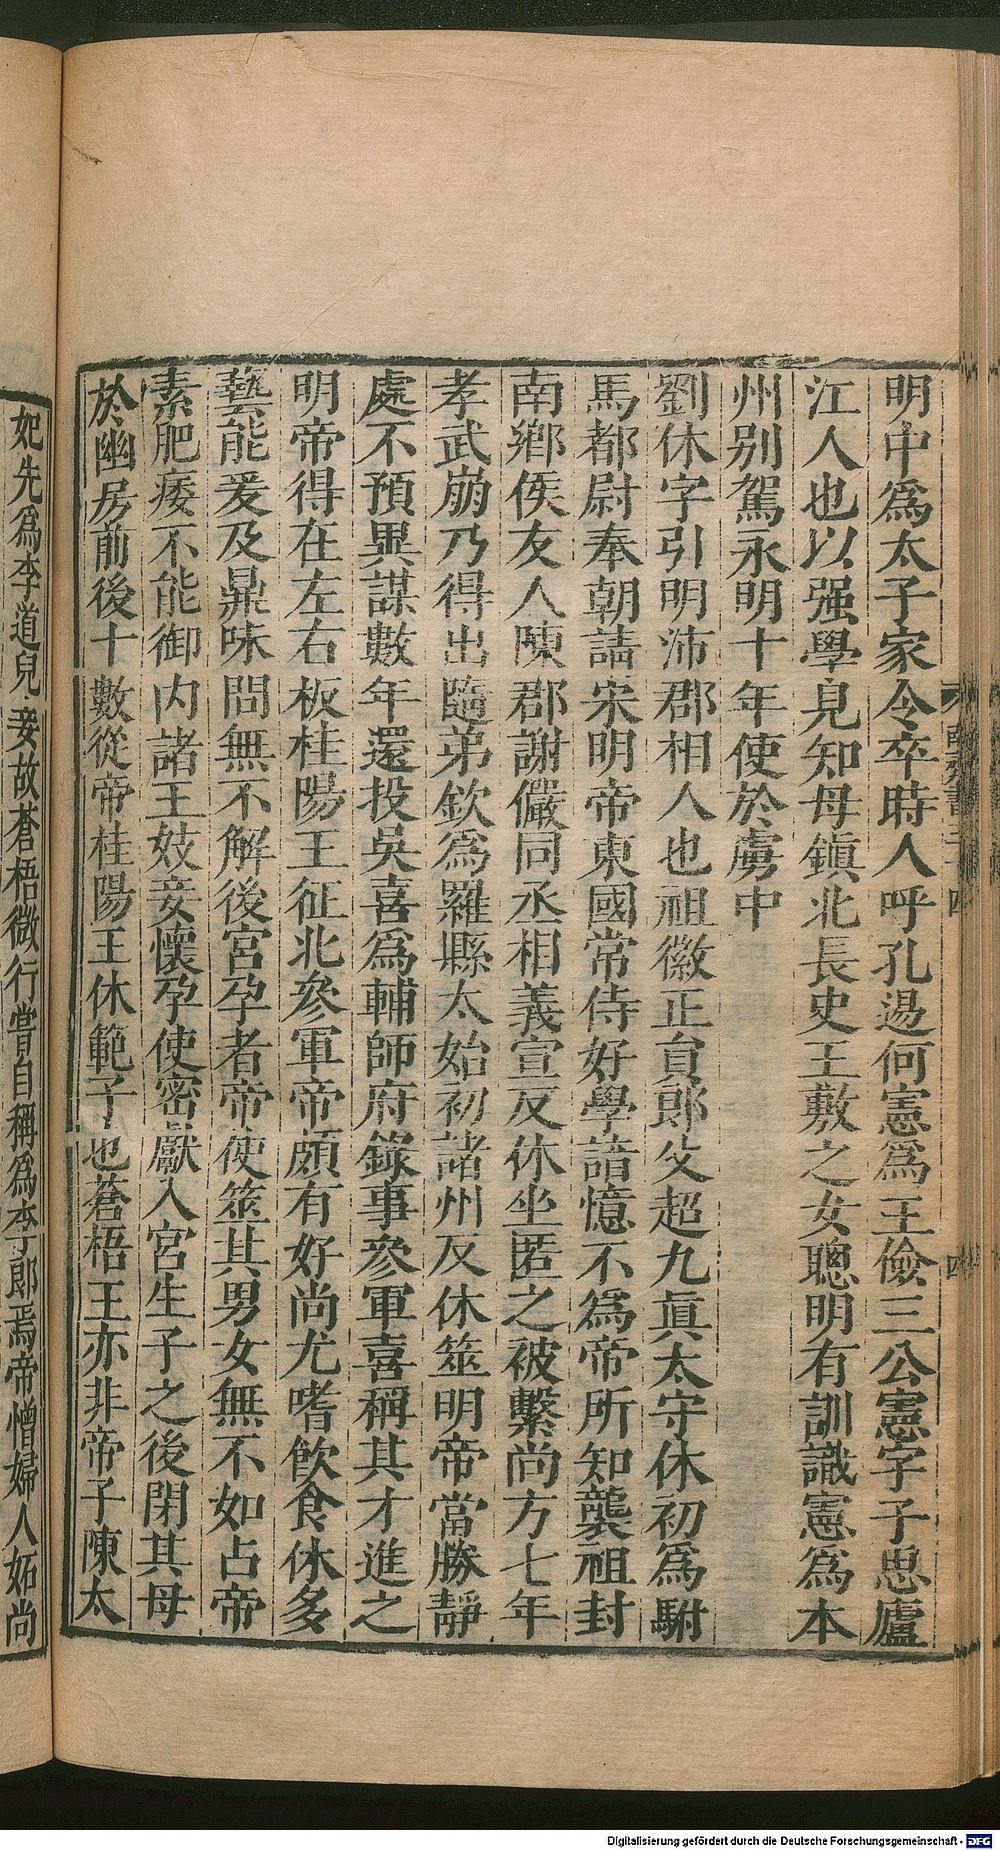 明中爲太子家令卒時人呼孔逷何憲爲王儉三公憲字子思廬
江人也以强學見知母鎭北長史王敷之女聰明有訓識憲爲本
州别駕永明十年使於虜中
劉休字引明沛郡相人也祖徽正員郎父超九眞太守休初爲駙
馬都尉奉朝請宋明帝東國常侍好學諳憶不爲帝所知襲祖封
南鄉侯友人陳郡謝儼同丞相義宣反休坐匿之被繫尚方七年
孝武崩乃得出隨弟欽爲羅縣太始初諸州反休筮明帝當勝靜
處不預異謀數年還投吳喜爲輔師府錄事參軍喜稱其才進之
明帝得在左右板桂陽王征北參軍帝頗有好尚尤嗜飲食休多
藝能爰及鼎味問無不解後宮孕者帝使筮其男女無不如占帝
素肥痿不能御内諸王妓妾懷孕使密獻入宮生子之後閉其母
於幽房前後十數從帝桂陽王休範子也蒼梧王亦非帝子陳太
妃先爲李道兒妾故蒼梧微行嘗自稱爲李郎焉帝憎婦人妬尚
四
Digitalisierung gefördert durch die Deutsche Forschungsgemeinschaft - DFG